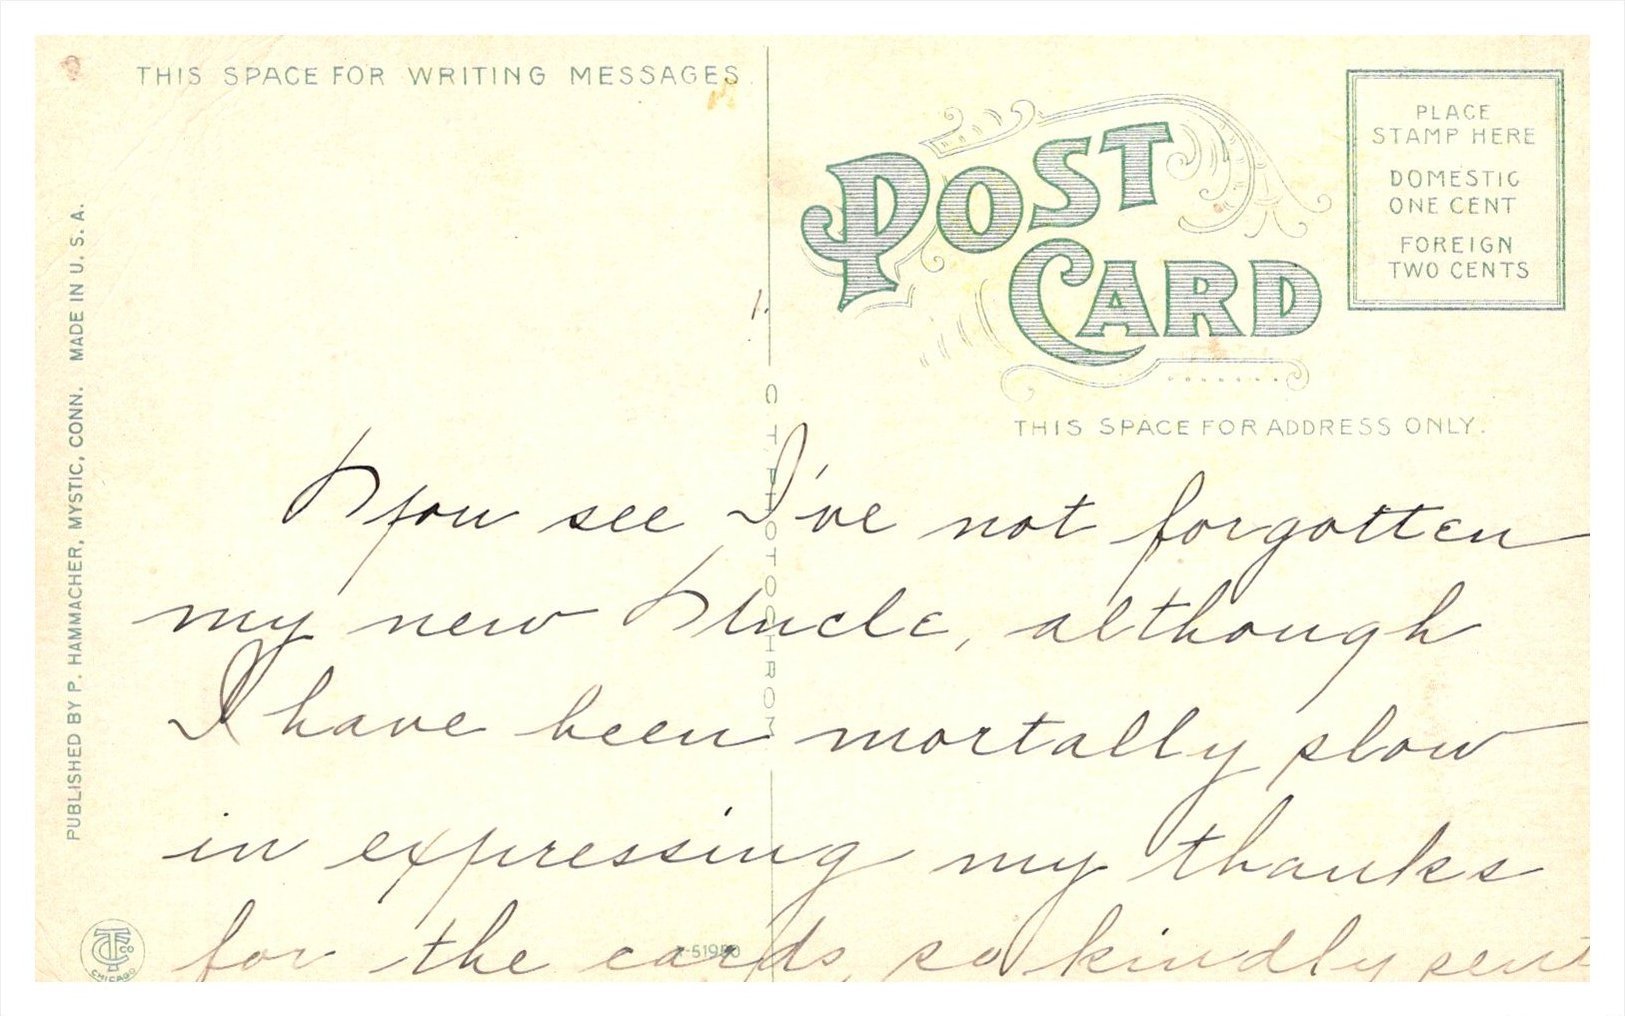 THIS SPACE FOR WRITING MESSAGES.
POST
CARD
PLACE
STAMP HERE
DOMESTIC
ONE CENT
FOREIGN
TWO CENTS
THIS SPACE FOR ADDRESS ONLY.
PUBLISHED BY P. HAMMACHER, MYSTIC, CONN. MADE IN U. S. A.
C. T. PHOTOCHROM
1.
You see I've not forgotten
my new Uncle, although
I have been mortally slow
in expressing my thanks
for the cards, so kindly sent
CHICAGO